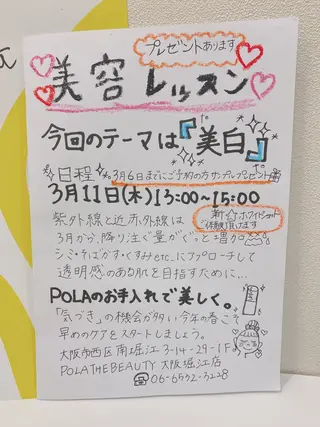 プレゼントあります
美容レッスン
今回のテーマは『美白』
日程 3月6日までにご予約の方サンプルプレゼント
3月11日(木)13:00~15:00
紫外線と近赤外線は
新発
体験頂けます
3月から、降り注ぐ量がぐっと増加
シミ・そばかす・くすみetc.にアプローチして
透明感のある肌を目指すために…
POLAのお手入れで美しく。
「気づき」の機会が多い今年の春こそ
早めのケアをスタートしましょう。
大阪市西区南堀江3-14-29-1F
POLA THE BEAUTY 大阪堀江店
☎06-6532-3228